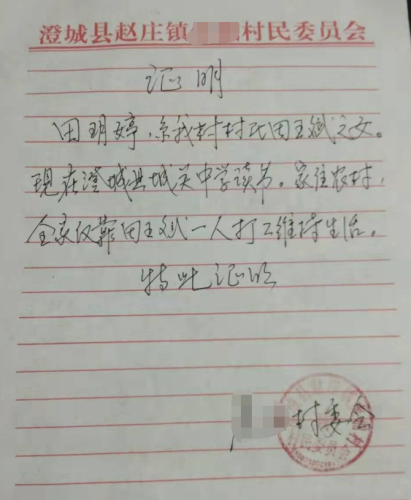 澄城县赵庄镇 村民委员会
证明
田玥婷,系我村村民田王斌之女。
现在澄城县城关中学读书。家住农村,
全家仅靠田王斌一人打工维持生活。
特此证明
村委会